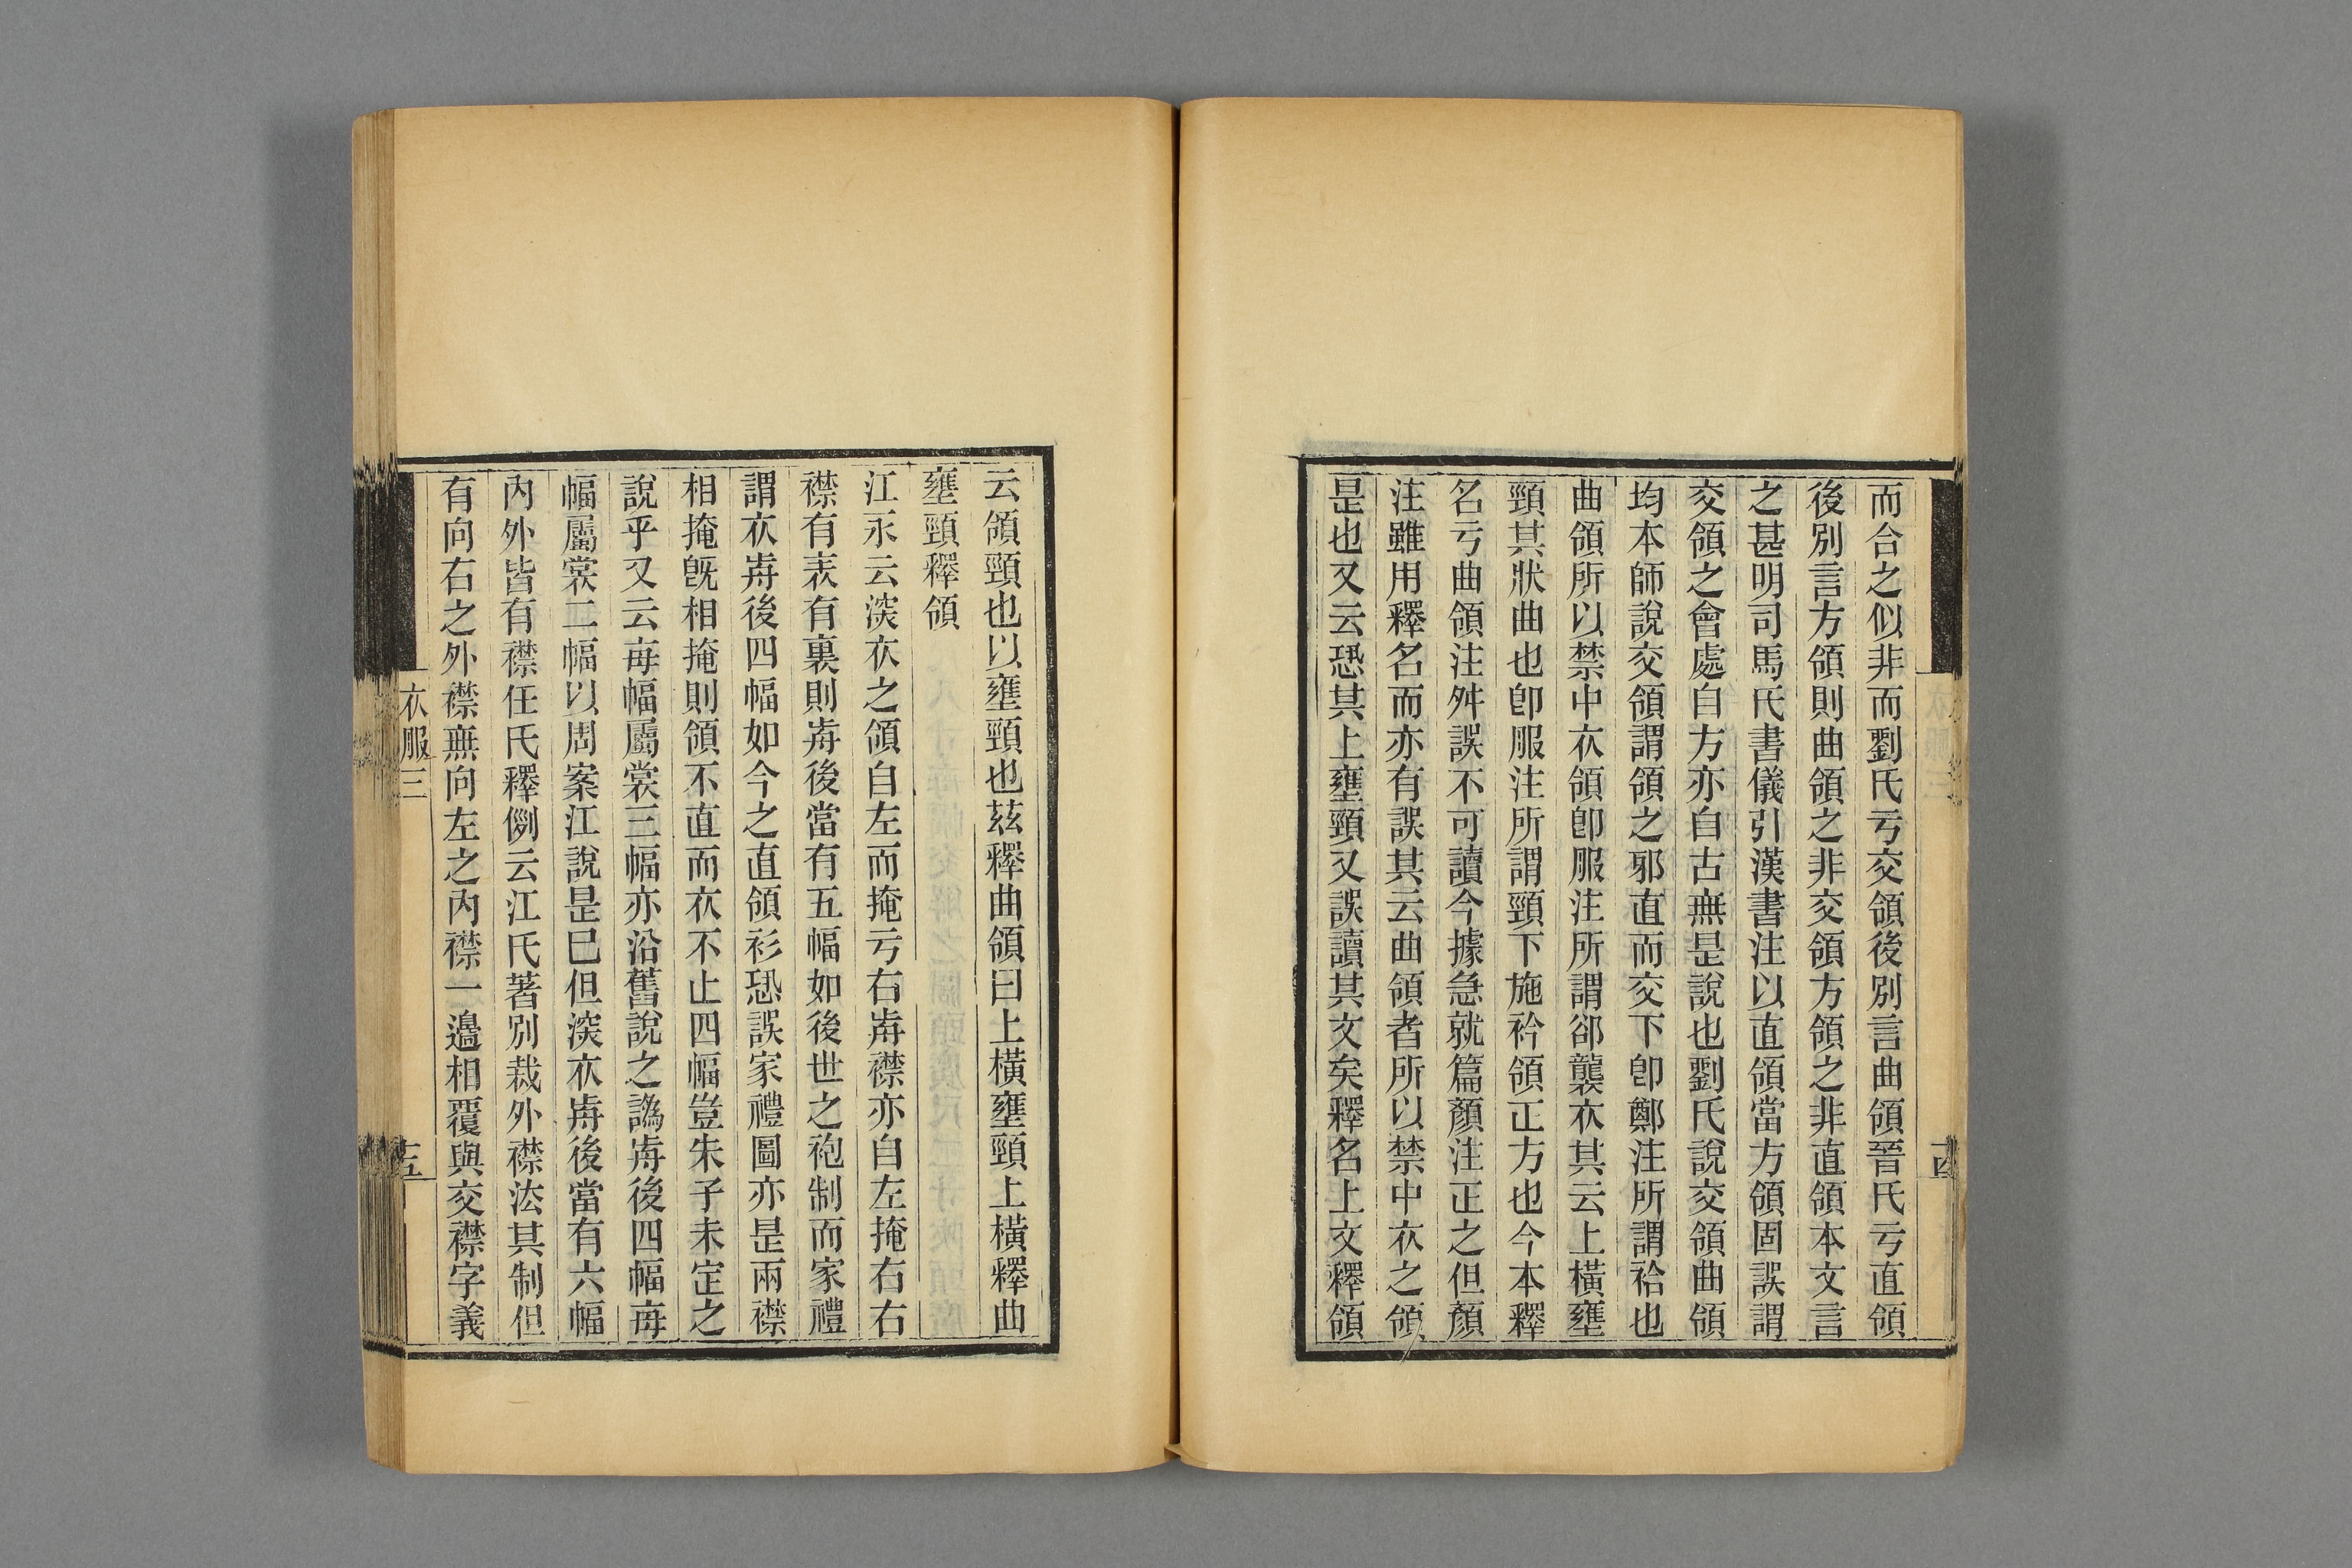 而合之似非而劉氏亏交領後別言曲領晉氏亏直領
後別言方領則曲領之非交領方領之非直領本文言
之甚明司馬氏書儀引漢書注以直領當方領固誤謂
交領之會處自方亦自古無是說也劉氏說交領曲領
均本師說交領謂領之邪直而交下卽鄭注所謂袷也
曲領所以禁中衣領卽服注所謂卻襲衣其云上橫壅
頸其狀曲也卽服注所謂頸下施衿領正方也今本釋
名亏曲領注舛誤不可讀今據急就篇顏注正之但顏
注雖用釋名而亦有誤其云曲領者所以禁中衣之領
是也又云恐其上壅頸又誤讀其文矣釋名上文釋領
十四
云領頸也以壅頸也茲釋曲領曰上橫壅頸上橫釋曲
壅頸釋領
江永云深衣之領自左而掩亏右歬襟亦自左掩右右
襟有表有裏則歬後當有五幅如後世之袍制而家禮
謂衣歬後四幅如今之直領衫恐誤家禮圖亦是兩襟
相掩旣相掩則領不直而衣不止四幅豈朱子未定之
說乎又云每幅屬裳三幅亦沿舊說之譌歬後四幅每
幅屬裳二幅以周案江說是巳但深衣歬後當有六幅
內外皆有襟任氏釋例云江氏著別裁外襟法其制但
有向右之外襟無向左之內襟一邊相覆與交襟字義
衣服三
十五